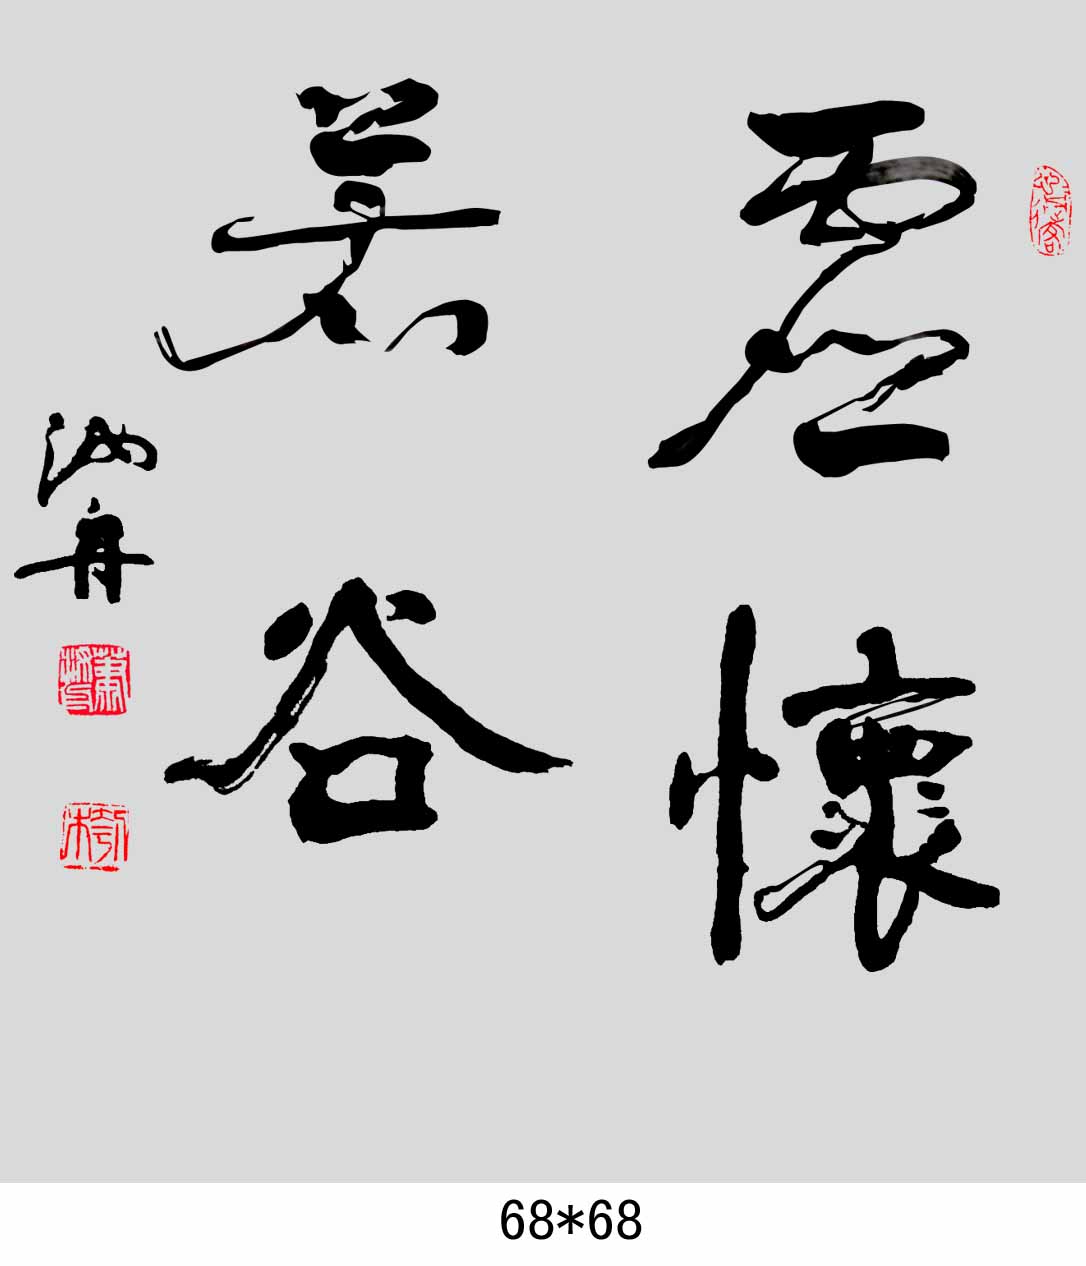 虚懷
若谷
汝舟
68*68